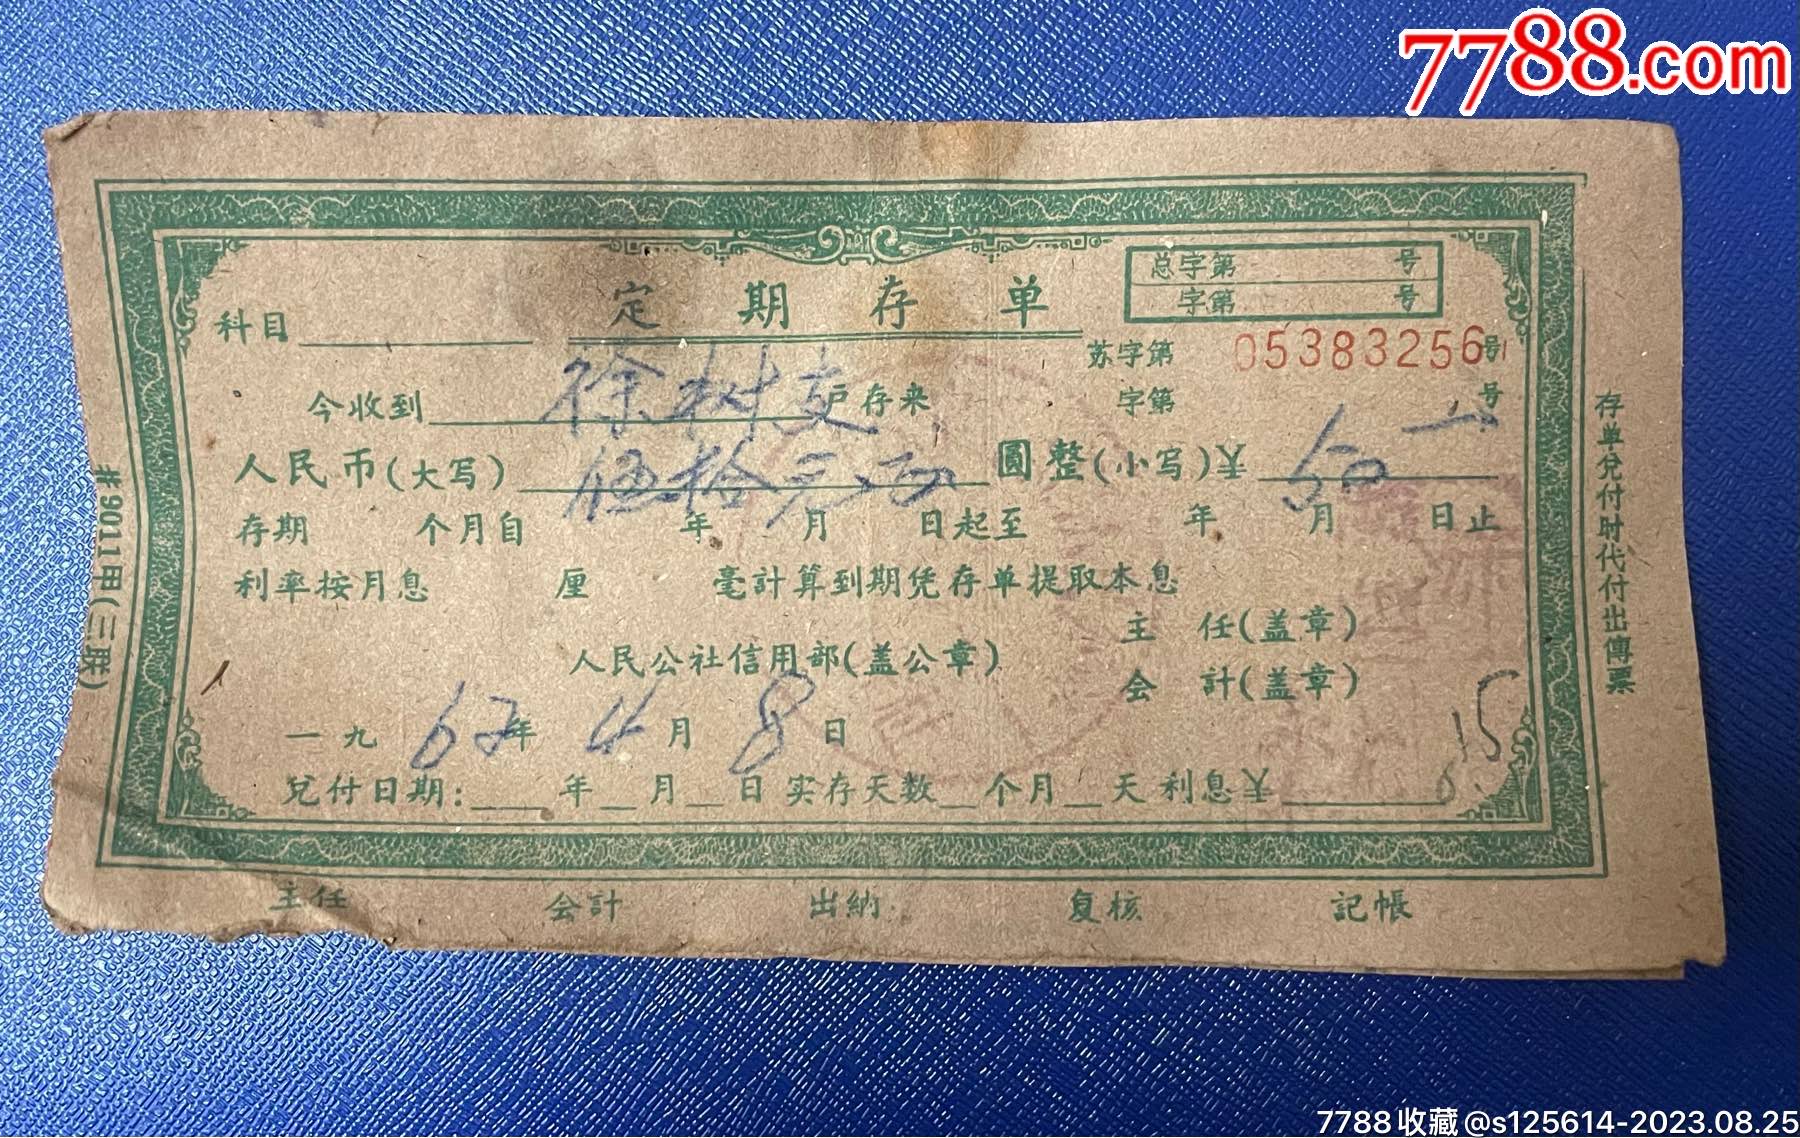 7788.com
总字第 号
字第 号
定期存单
科目
苏字第 05383256号
今收到 徐树支 户存来 字第 号
人民币(大写) 伍拾元 圆整(小写)¥ 50
存期 个月自 年 月 日起至 年 月 日止
利率按月息 厘 毫計算到期凭存单提取本息
主任(盖章)
人民公社信用部(盖公章)
会計(盖章)
一九62年4月8日
兑付日期: 年 月 日 实存天数 个月 天 利息¥
主任 会計 出納 复核 記帳
#9011甲(三联)
存单兑付时代付出傳票
7788收藏@s125614-2023.08.25